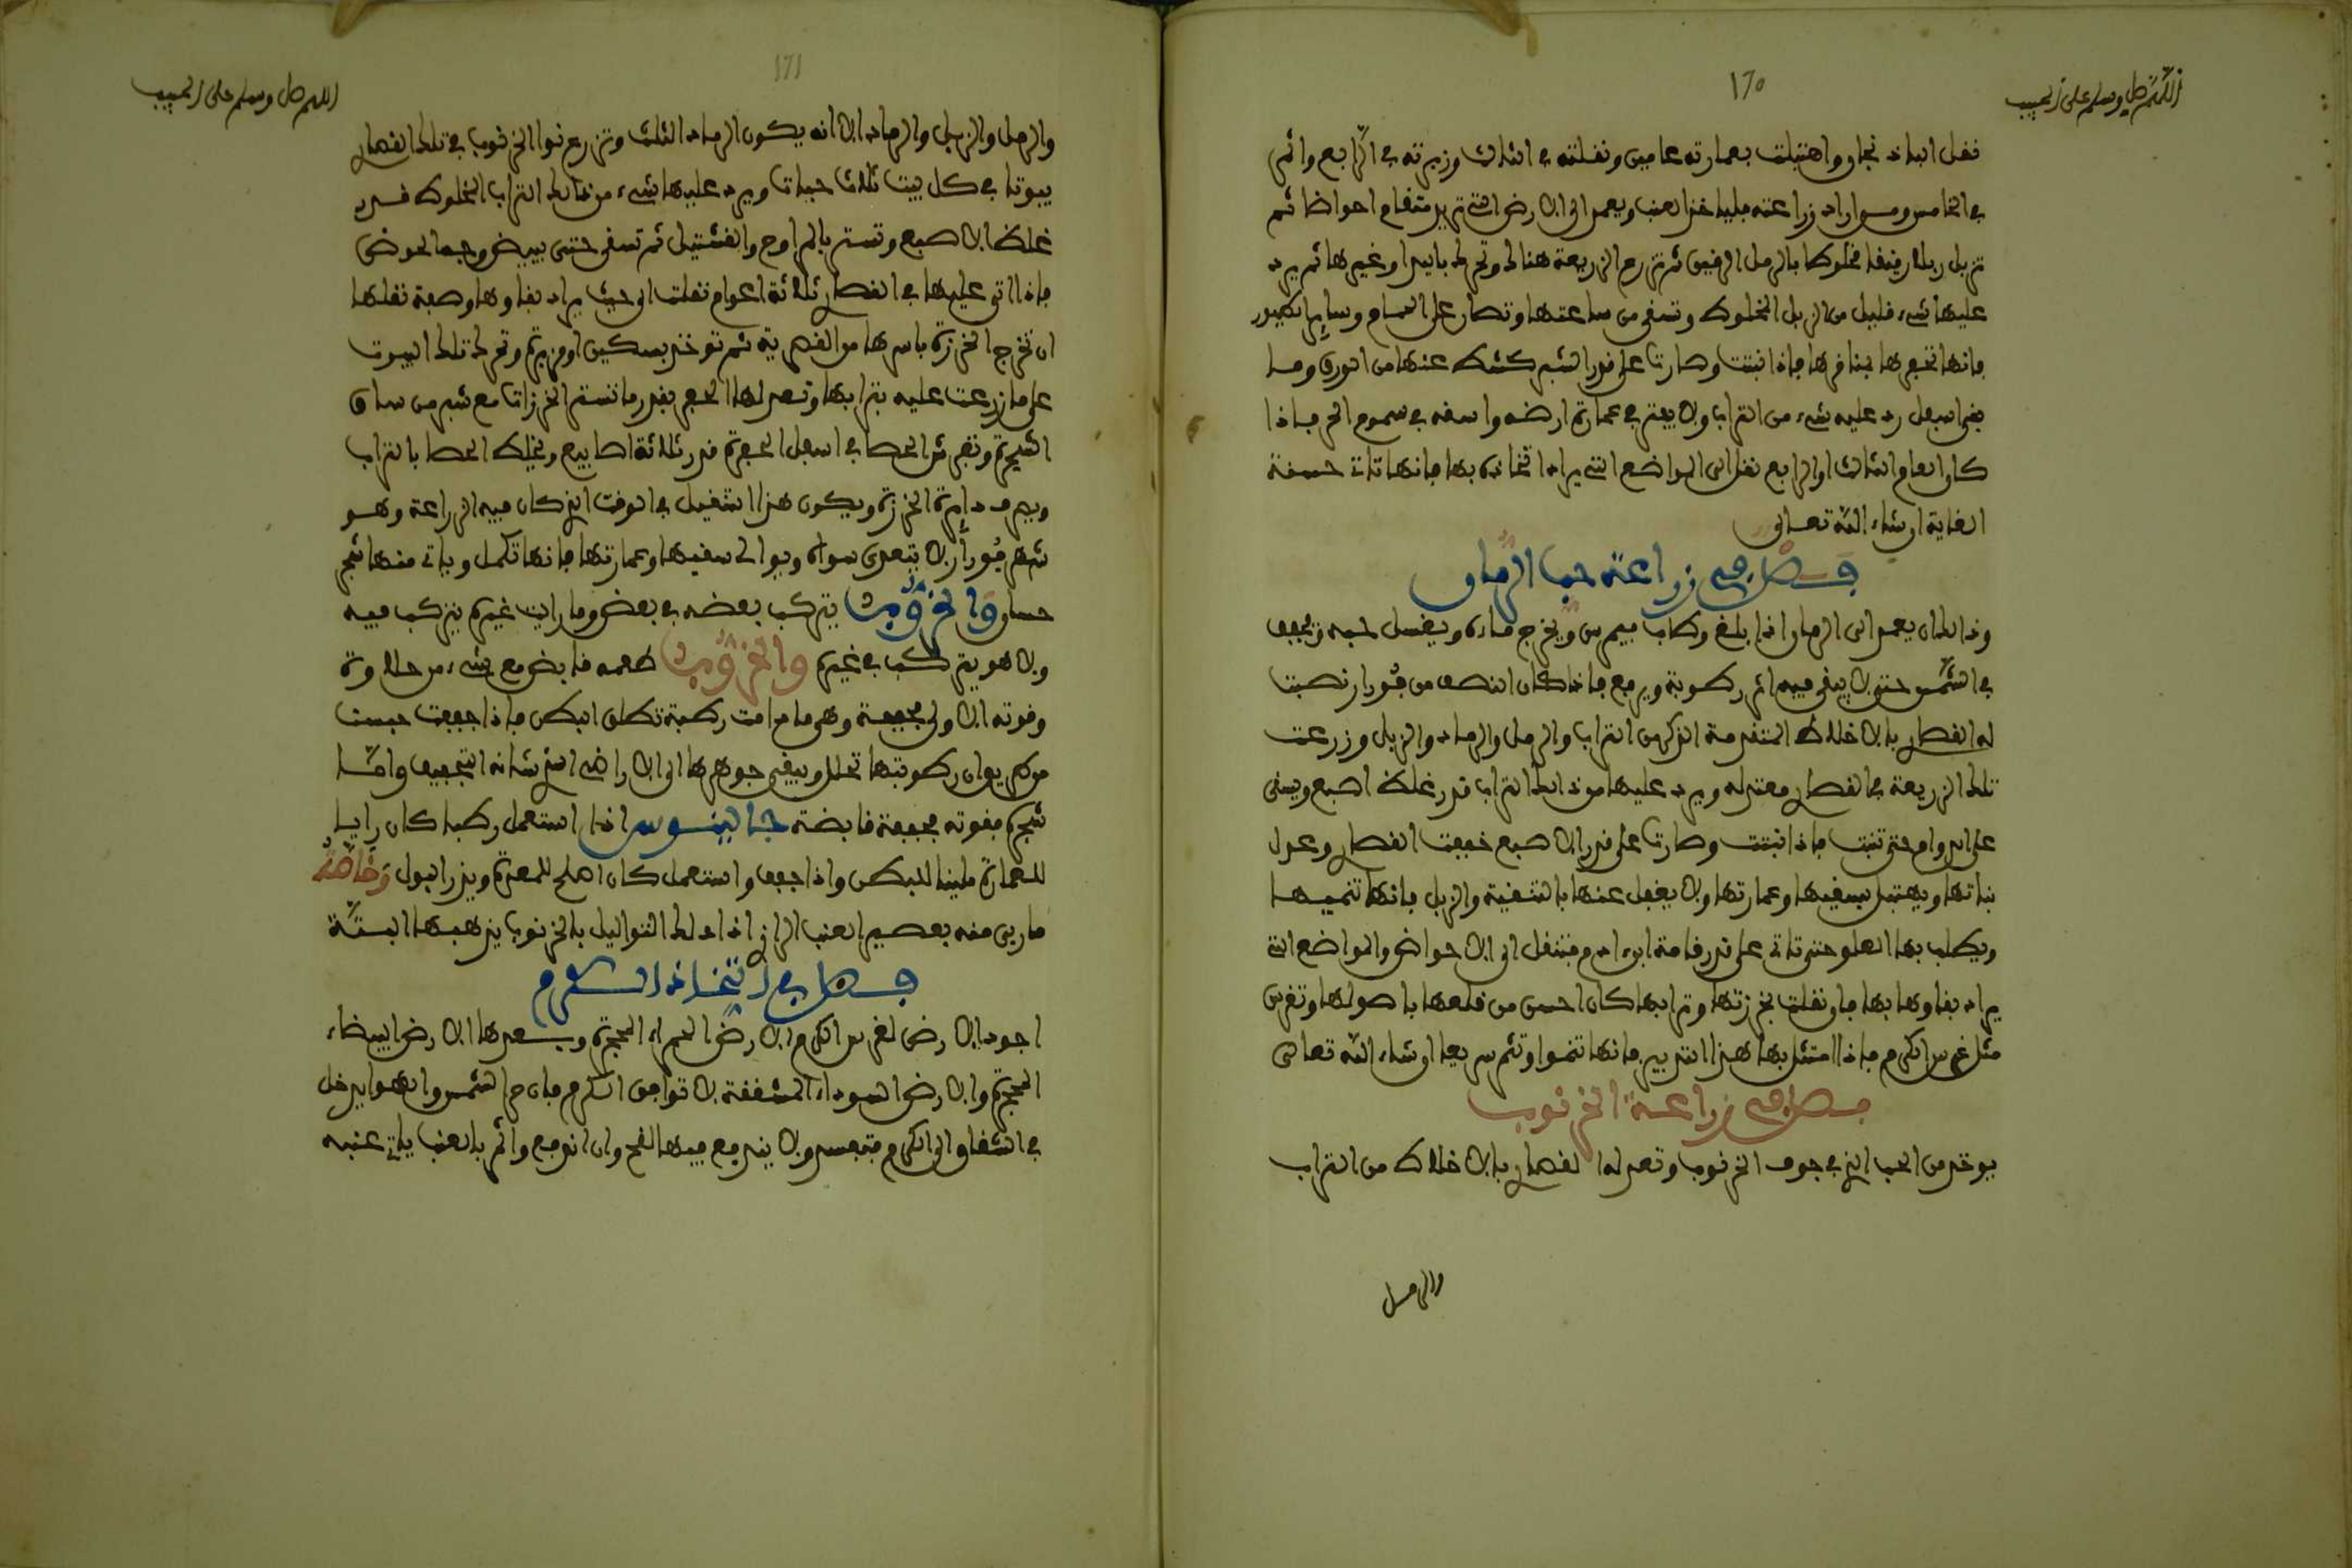 اللهم صل وسلم على الحبيب
170
نقل البلاد نجار واهتبلت بعمارته عامين ونقلته في الثالث وزبرته في الرابع واثمر
في الخامس ومن اراد زراعته فلياخذ العنب ويعمد الى الارض التي تريد متقام احواضا ثم
تزبل زبلا رقيقا مخلوطا بالرمل الرقيق ثم تزرع الزريعة هنالك وتحرك باليد او غيرها ثم يرد
عليها شيء قليل من الزبل المخلوط وتسقى من ساعتها وتصان على النمل وساير الطيور
فانها تحفرها بمنافرها فاذا نبتت وصارت على قدر الشبر كشف عنها من الورق وما
بقي اسفل رد عليه شيء من التراب ولا يفتر في عمارة ارضه واسقه في سموم الحر فاذا
كان العام الثالث او الرابع نقل الى المواضع التي يراد اتخاذه بها فانها تات حسنة
الغاية ان شاء الله تعالى
فصل في زراعة حب الرمان
وذلك ان يعمد الى الرمان اذا بلغ وطاب فيمرس ويخرج ماءه ويغسل حبه ويجفف
في الشمس حتى لا يبقى فيه اثر رطوبة ويرفع فاذا كان النصف من فورار نصبت
له القصار بالاخلاط المتقدمة الذكر من التراب والرمل والرماد والزبل وزرعت
تلك الزريعة في القصار معتدله ويرد عليها من ذلك التراب قدر غلظ اصبع ويسقى
على الدوام حتى تنبت فاذا نبتت وصارت على قدر الاصبع خففت القصار وعدل
نباتها ويهتبل بسقيها وعمارتها ولا يغفل عنها بالتنقية والزبل فانها تنميها
ويطلب بها العلو حتى تاتي على قدر قامة ابن ادم فتنقل الى الاحواض والمواضع التي
يراد بقاوها بها فان نقلت بخرزتها وترابها كان احسن من قلعها باصولها وتغرس
مثل غرس الكرم فاذا امتثل بها هذا التدبير فانها تنموا وتثمر سريعا ان شاء الله تعالى
فصل في زراعة الخرنوب
يوخذ من الحب الذي في جوف الخرنوب وتعد له القصار بالاخلاط من التراب
والرمل
اللهم صل وسلم على الحبيب
171
والرمل والزبل والرماد الا انه يكون الرماد الثلث وتزرع نوا الخرنوب في تلك القصار
بيوتا في كل بيت ثلاث حبات ويرد عليها شيء من ذلك التراب المخلوط قدر
غلظ الاصبع وتستر بالمراوح والفشتيل ثم تسقى حتى يبيض وجه الحوض
فاذا اتى عليها في القصار ثلاثة اعوام نقلت الى حيث يراد بقاوها وصفة نقلها
ان تخرج الخرزة باسرها من القصرية ثم توخذ بسكين او مزبرة وتحرك تلك البيوت
على ما زرعت عليه بترابها وتعد لها الحفر بقدر ما تستر الخرزات مع شبر من ساق
الشجرة وتفرش الحصا في اسفل الحفرة قدر ثلاثة اصابيع ويخلط الحصا بالتراب
ويصرف دايرة الخرزة ويكون هذا التنقيل في الوقت الذي كان فيه الزراعة وهو
شهر فورار لا يتعدى سواه ويوالى سقيها وعمارتها فانها تكمل وياتي منها شجر
حسان والخرنوب يتركب بعضه في بعض وما رايت غيره يتركب فيه
ولا هو يتركب في غيره والخرنوب طعمه قابض مع شيء من حلاوة
وقوته الاولى مجففة وهي ما دامت رطبة تطلق البطن فاذا جففت حبست
من طريق ان رطوبتها تحلل ويبقى جوهرها الى الاراضي الذي شانه التجفيف وامّا
شجره فقوته مجففة قابضة جالينوس اذا استعمل رطبا كان رايبا
للمعدة ملينا للبطن واذا جفف واستعمل كان اصلح للمعدة ويدر البول وخاصّة
ما ربي منه بعصير العنب الرازي اذا دلك التواليل بالخرنوب يذهبها البتّة
فصل في اتخاذ الكروم
اجود الارض لغرس الكرم الارض الحمراء المحجرة وبعدها الارض البيضاء
المحجرة والارض السوداء المشققة لا توافق الكرم فان حر الشمس والهوا يدخل
في الشقاق الى الكرم فتفسد ولا يندفع فيها القح وان اندفع واثمر بالعنب ياتي عنبه